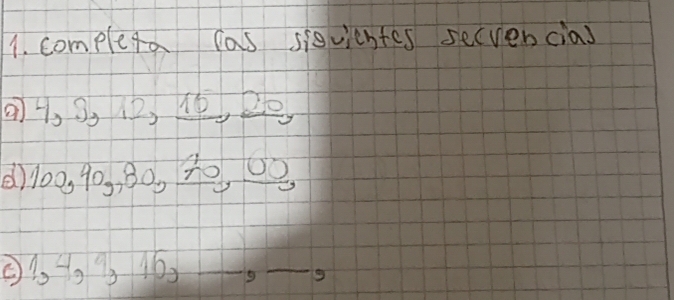 1. completa las siguientes secvencias
a) 4, 8, 12, 16, 20,
d) 100, 90, 80, 70, 60,
c) 1, 4, 9, 16, __, __,